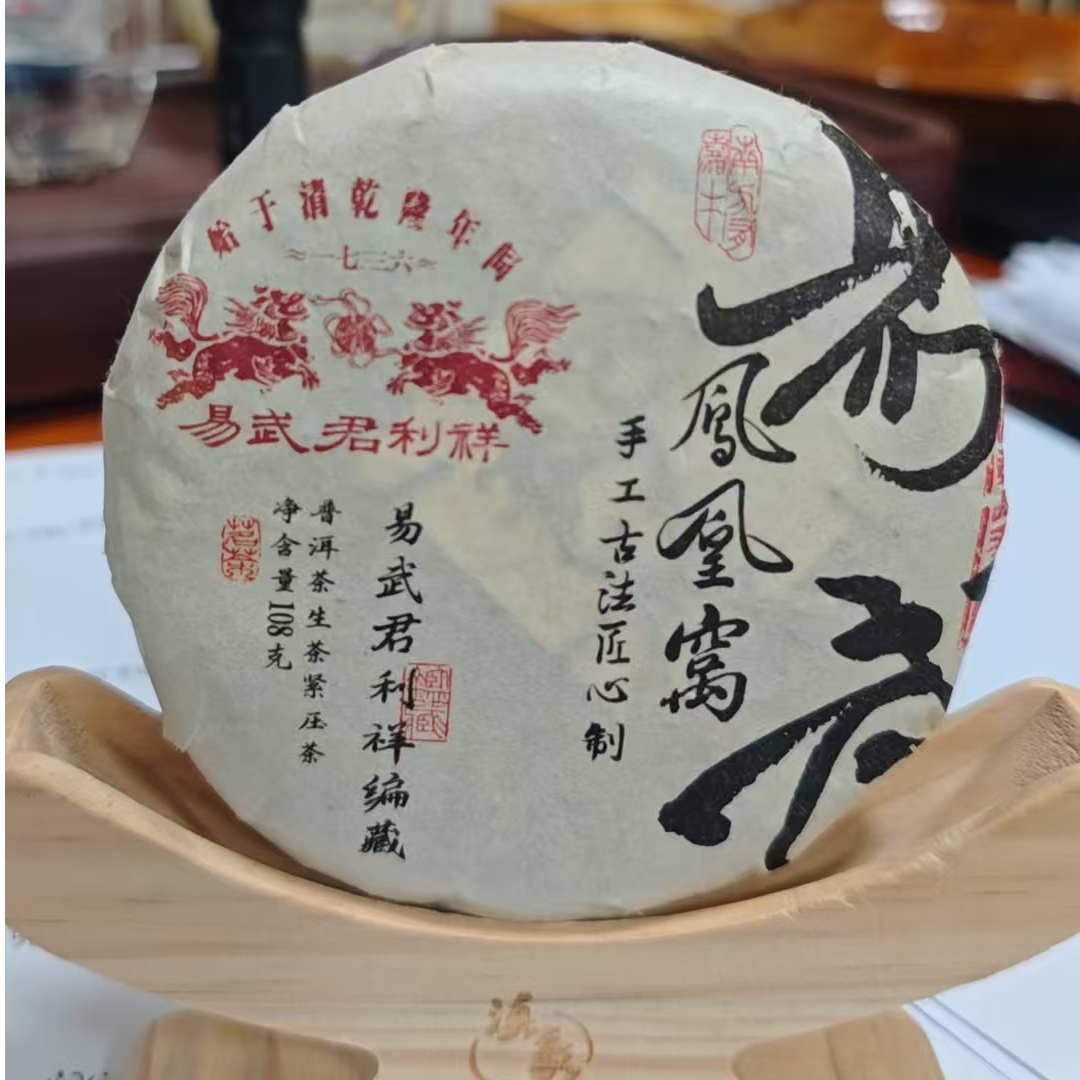 始于清乾隆年间
一七三六
易武君利祥
凤凰窝
手工古法匠心制
易武君利祥编藏
普洱茶生茶紧压茶
净含量108克
茗茶